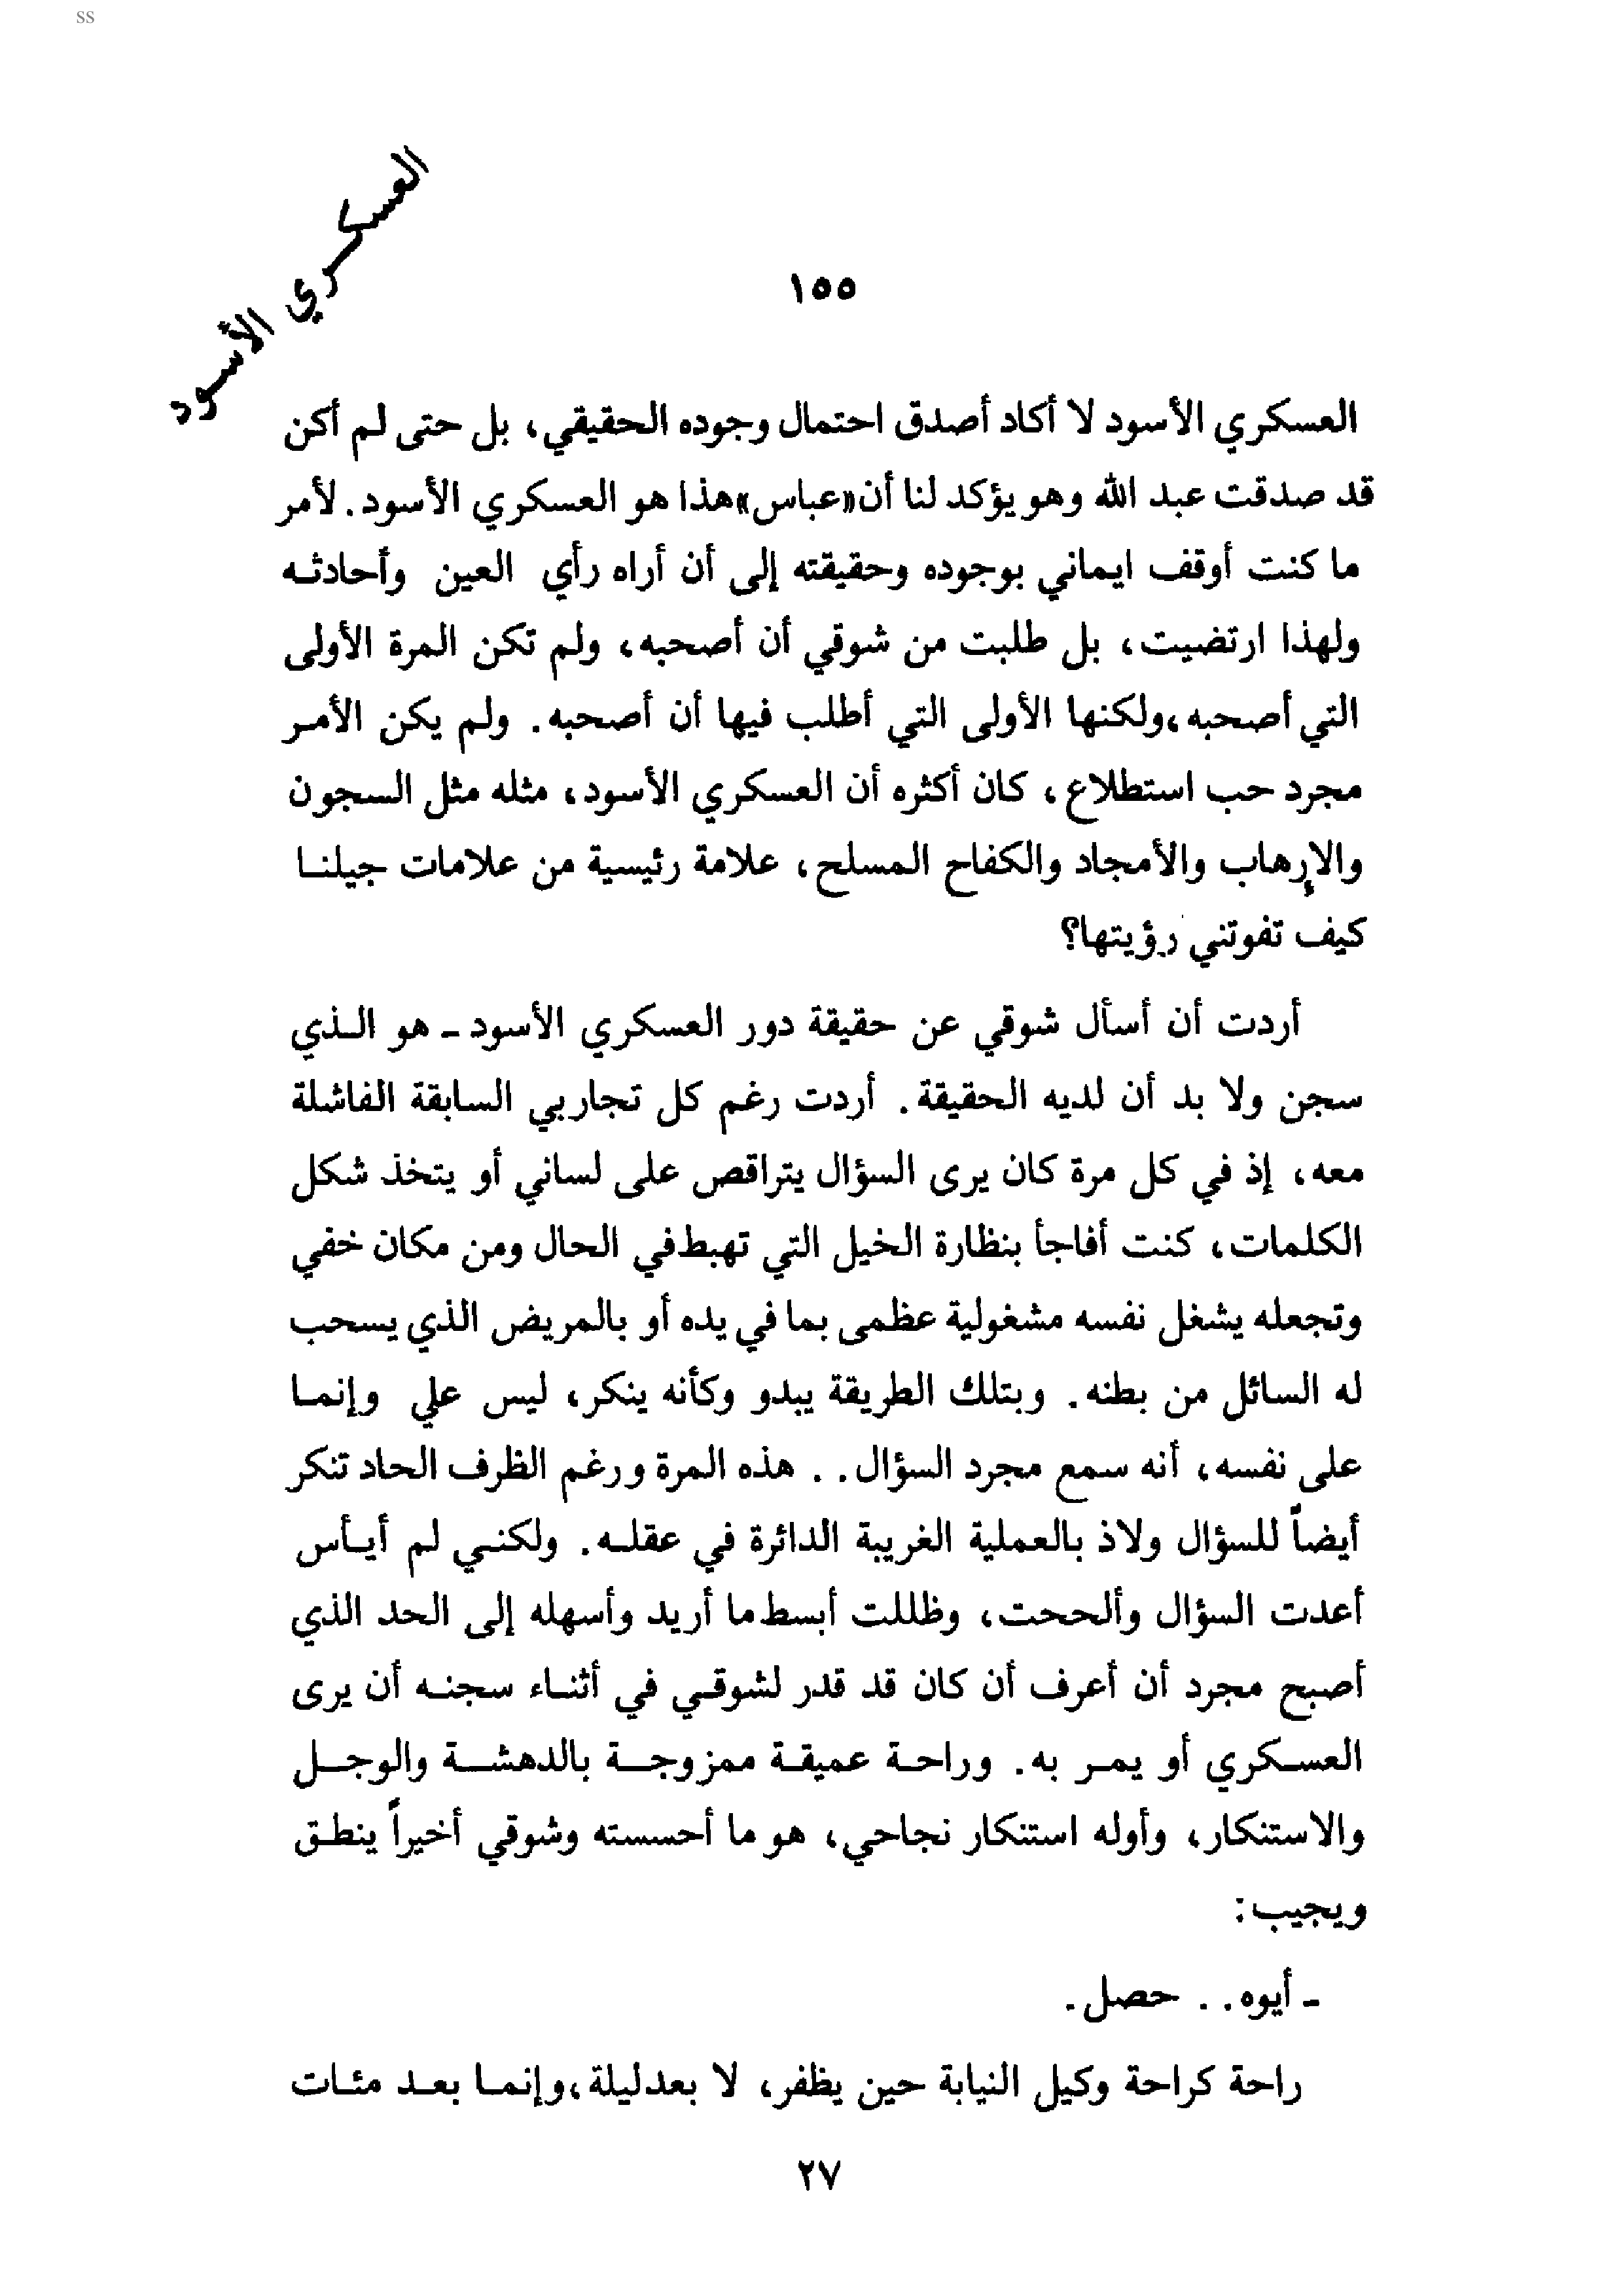 ss
العسكري الأسود
١٥٥
العسكري الأسود لا أكاد أصدق احتمال وجوده الحقيقي، بل حتى لم أكن
قد صدقت عبد الله وهو يؤكد لنا أن «عباس» هذا هو العسكري الأسود. لأمر
ما كنت أوقف ايماني بوجوده وحقيقته إلى أن أراه رأي العين وأحادثه
ولهذا ارتضيت، بل طلبت من شوقي أن أصحبه، ولم تكن المرة الأولى
التي أصحبه، ولكنها الأولى التي أطلب فيها أن أصحبه. ولم يكن الأمر
مجرد حب استطلاع، كان أكثره أن العسكري الأسود، مثله مثل السجون
والإرهاب والأمجاد والكفاح المسلح، علامة رئيسية من علامات جيلنا
كيف تفوتني رؤيتها؟
أردت أن أسأل شوقي عن حقيقة دور العسكري الأسود ـ هو الذي
سجن ولا بد أن لديه الحقيقة. أردت رغم كل تجاربي السابقة الفاشلة
معه، إذ في كل مرة كان يرى السؤال يتراقص على لساني أو يتخذ شكل
الكلمات، كنت أفاجأ بنظارة الخيل التي تهبط في الحال ومن مكان خفي
وتجعله يشغل نفسه مشغولية عظمى بما في يده أو بالمريض الذي يسحب
له السائل من بطنه. وبتلك الطريقة يبدو وكأنه ينكر، ليس علي وإنما
على نفسه، أنه سمع مجرد السؤال.. هذه المرة ورغم الظرف الحاد تنكر
أيضاً للسؤال ولاذ بالعملية الغريبة الدائرة في عقله. ولكني لم أيأس
أعدت السؤال وألححت، وظللت أبسط ما أريد وأسهله إلى الحد الذي
أصبح مجرد أن أعرف أن كان قد قدر لشوقي في أثناء سجنه أن يرى
العسكري أو يمر به. وراحة عميقة ممزوجة بالدهشة والوجل
والاستنكار، وأوله استنكار نجاحي، هو ما أحسسته وشوقي أخيراً ينطق
ويجيب:
ـ أيوه.. حصل.
راحة كراحة وكيل النيابة حين يظفر، لا بعد ليلة، وإنما بعد مئات
٢٧